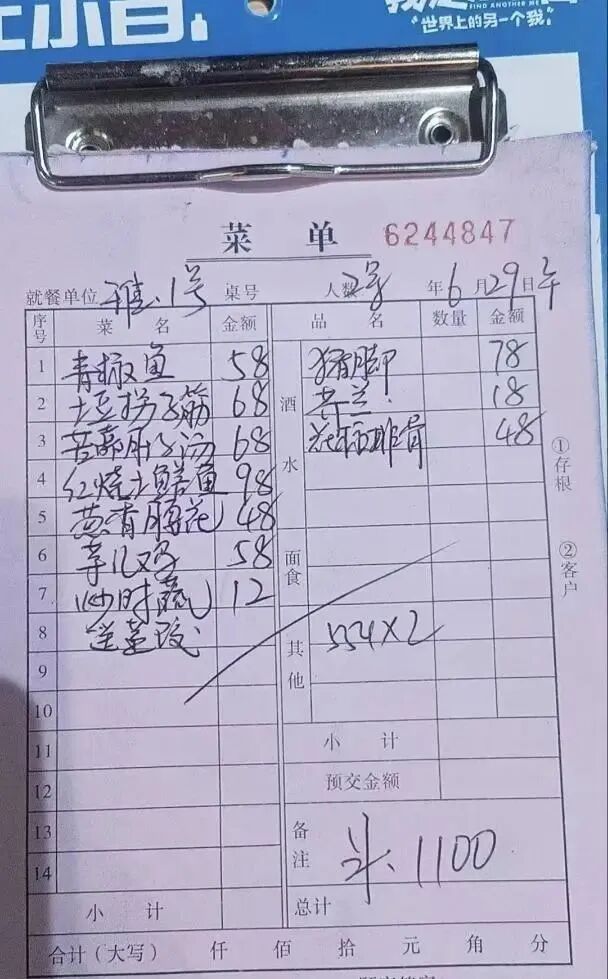 FIND ANOTHER ME
"世界上的另一个我"
菜 单 6244847
就餐单位 雅.1号 桌号 人数 2号 年 6 月 29 日 午
序号 菜 名 金额 品 名 数量 金额
1 青椒鱼 58 酒水 猪脚 78
2 土豆拐子筋 68 芥兰 18
3 68 排骨 48
4 红烧土鳝鱼 98
5 葱香腰花 48
6 58 面食
7 炒时蔬 12
8 其他 554×2
9
10
11 小 计
12 预交金额
13 备注 1100
14
小 计 总计
合计（大写） 仟 佰 拾 元 角 分
①存根
②客户